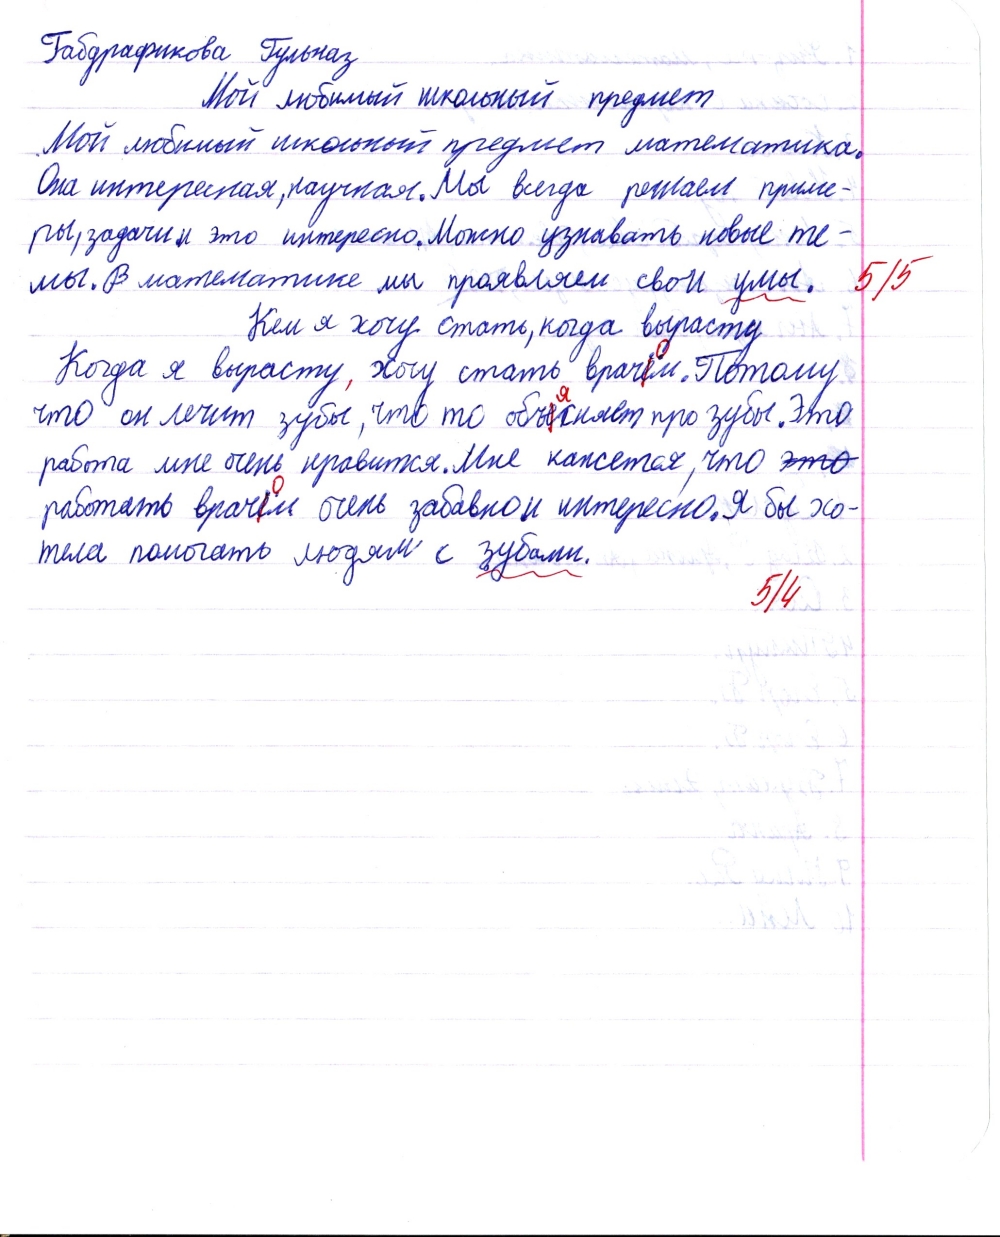 Габдрафикова Гульназ
Мой любимый школьный предмет
Мой любимый школьный предмет математика.
Она интересная, научная. Мы всегда решаем приме-
ры, задачи и это интересно. Можно узнавать новые те-
мы. В математике мы проявляем свои умы. 5/5
Кем я хочу стать, когда вырасту
Когда я вырасту, хочу стать врачом. Потому
что он лечит зубы, что то объясняет про зубы. Это
работа мне очень нравится. Мне кажется, что это
работать врачом очень забавно и интересно. Я бы хо-
тела помогать людям с зубами.
5/4